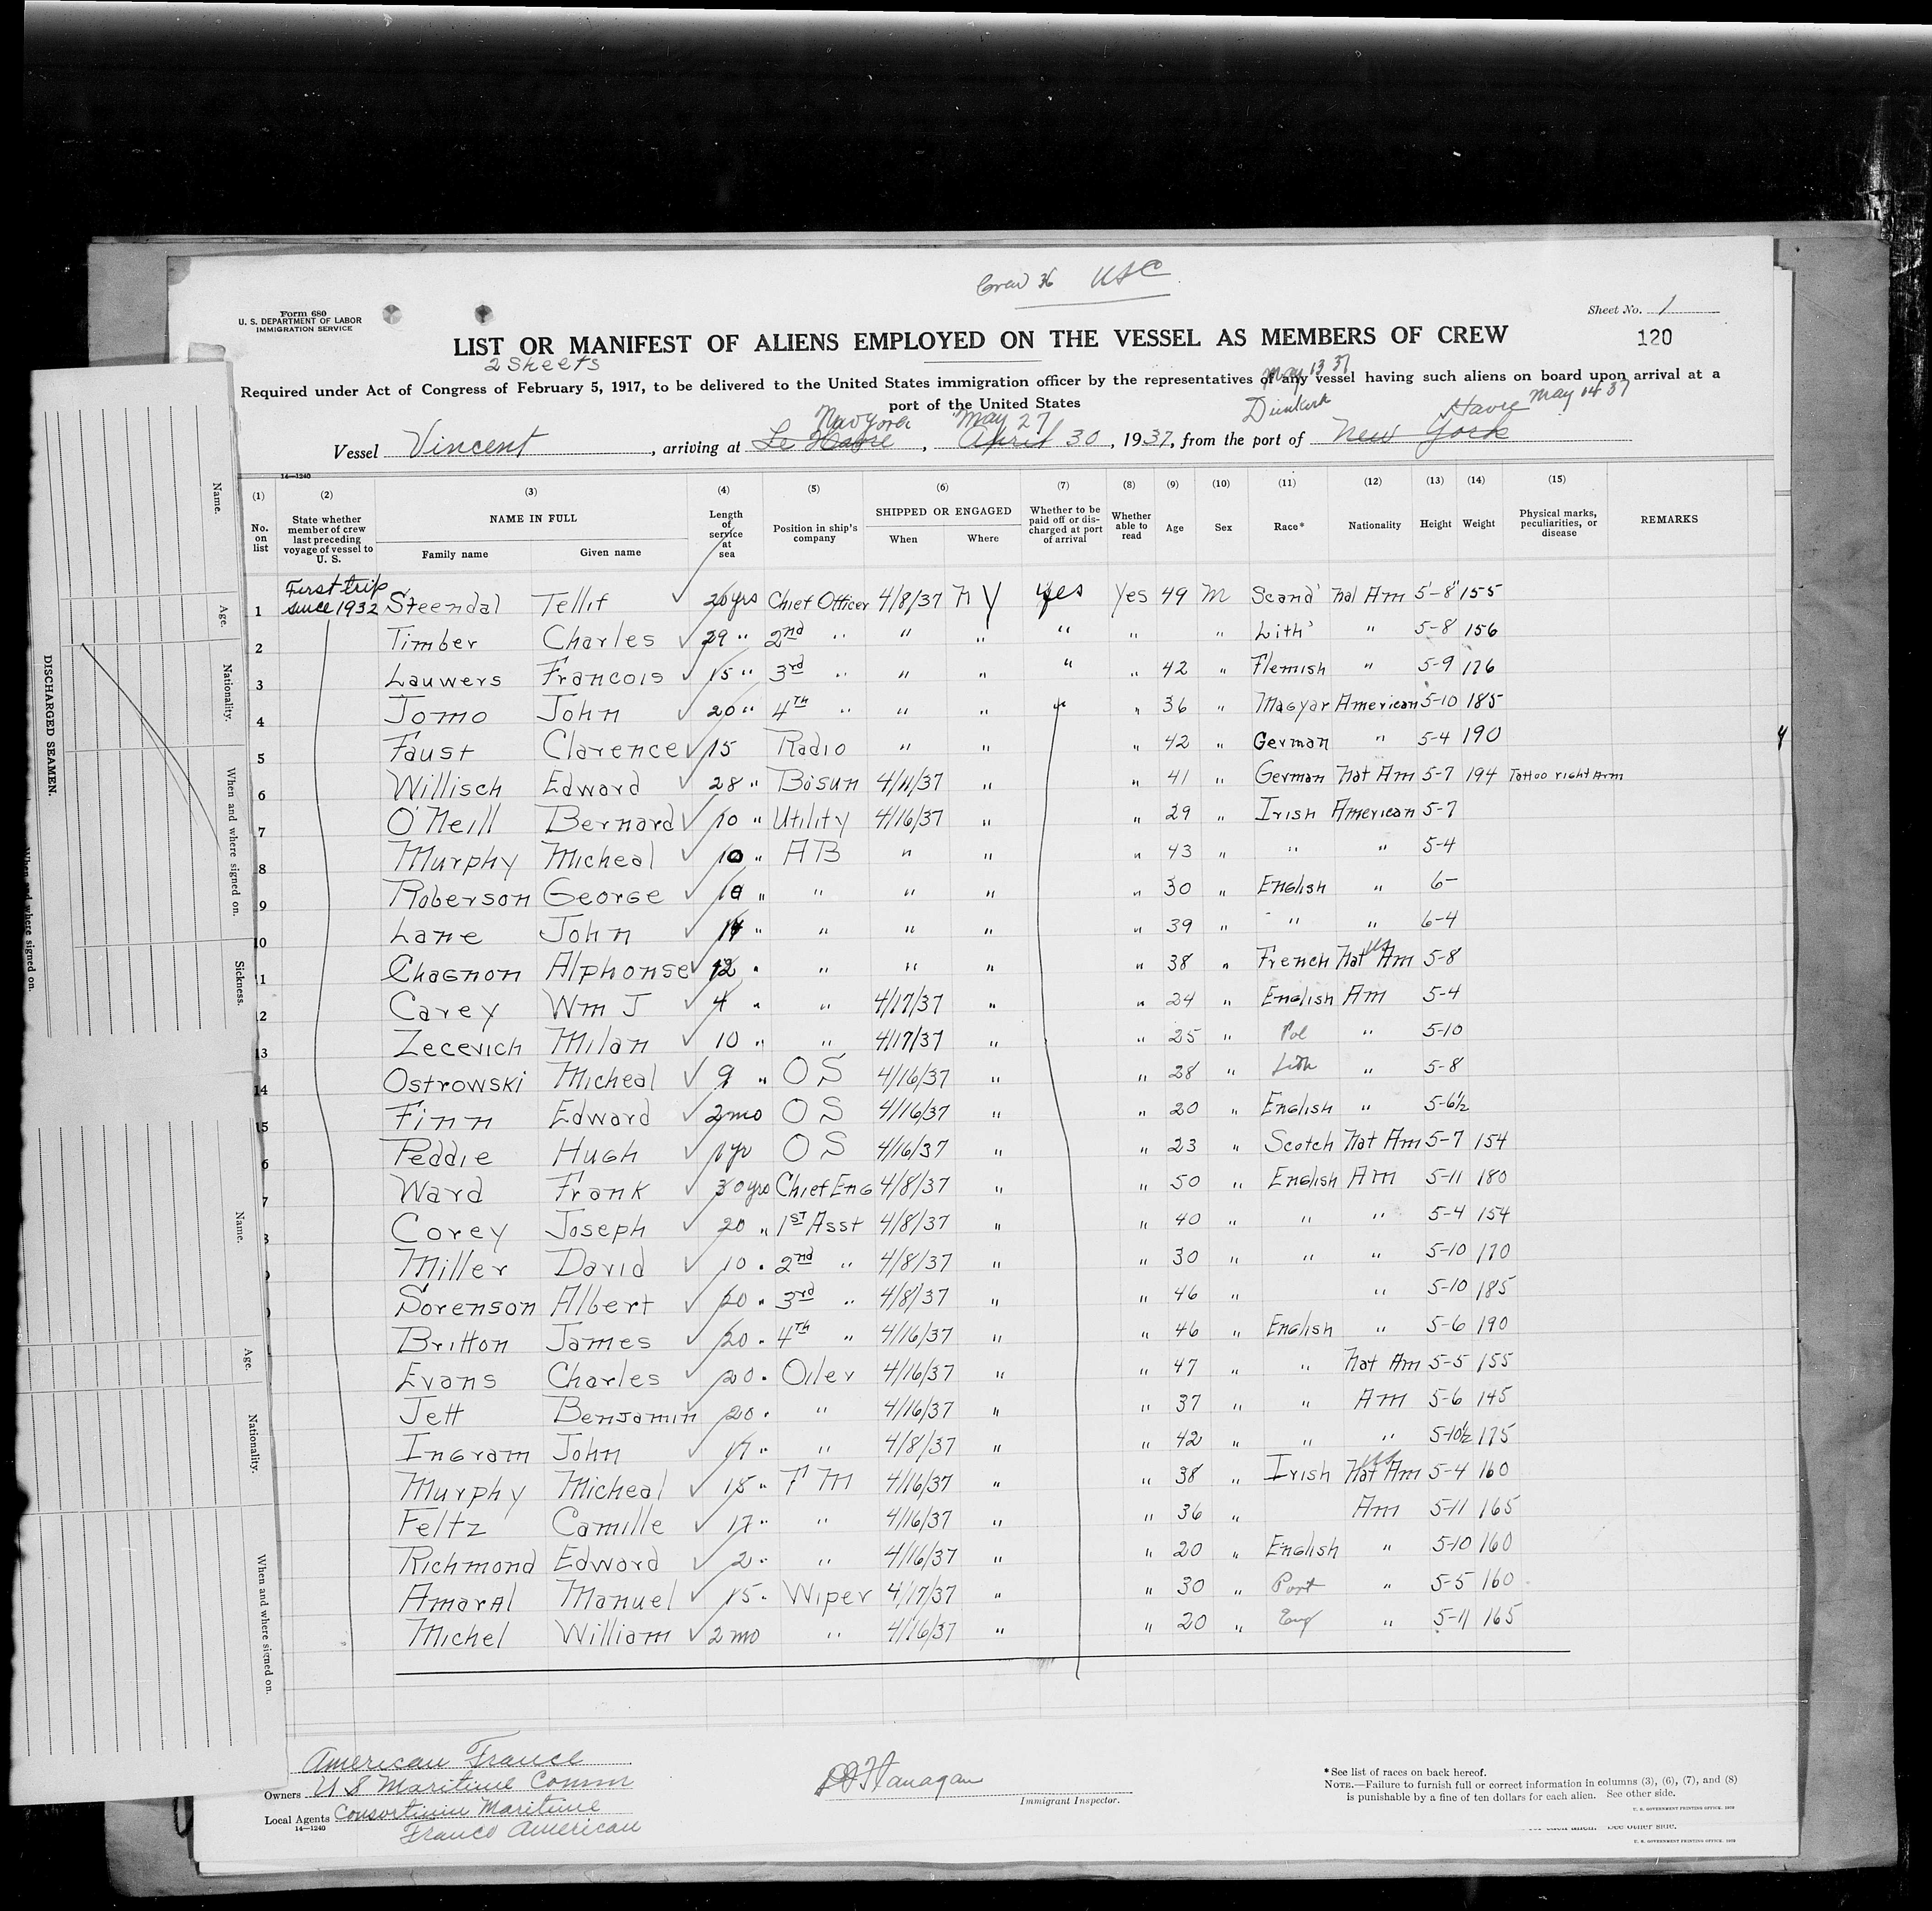 Crew 36 USC
Form 680
U. S. DEPARTMENT OF LABOR
IMMIGRATION SERVICE
Sheet No. 1
LIST OR MANIFEST OF ALIENS EMPLOYED ON THE VESSEL AS MEMBERS OF CREW
120
2 Sheets
May 13 37
Required under Act of Congress of February 5, 1917, to be delivered to the United States immigration officer by the representatives of any vessel having such aliens on board upon arrival at a
port of the United States
New York May 27 Dunkirk Havre May 14 37
Vessel Vincent, arriving at Le Havre, April 30, 1937, from the port of New York
14—1240
(1) (2) (3) (4) (5) (6) (7) (8) (9) (10) (11) (12) (13) (14) (15)
No. on list
State whether member of crew last preceding voyage of vessel to U. S.
NAME IN FULL
Family name Given name
Length of service at sea
Position in ship's company
SHIPPED OR ENGAGED
When Where
Whether to be paid off or discharged at port of arrival
Whether able to read
Age
Sex
Race*
Nationality
Height
Weight
Physical marks, peculiarities, or disease
REMARKS
First trip
1 since 1932 Steendal Tellif ✓ 20 yrs Chief Officer 4/8/37 N Y Yes Yes 49 M Scand' Nat Am 5'-8" 155
2 Timber Charles ✓ 29 " 2nd " " " " " " Lith' " 5-8 156
3 Lauwers Francois ✓ 15 " 3rd " " " " " 42 " Flemish " 5-9 176
4 Jomo John ✓ 20 " 4TH " " " " " 36 " Magyar American 5-10 185
5 Faust Clarence ✓ 15 Radio " " " 42 " German " 5-4 190
6 Willisch Edward ✓ 28 " Bosun 4/11/37 " " 41 " German Nat Am 5-7 194 Tattoo right Arm
7 O'Neill Bernard ✓ 10 " Utility 4/16/37 " " 29 " Irish American 5-7
8 Murphy Micheal ✓ 10 " AB " " " 43 " " " 5-4
9 Roberson George ✓ 10 " " " " " 30 " English " 6-
10 Lane John ✓ 14 " " " " " 39 " " " 6-4
11 Chagnon Alphonse ✓ 12 " " " " " 38 " French Nat US Am 5-8
12 Carey Wm J ✓ 4 " " 4/17/37 " " 24 " English Am 5-4
13 Zecevich Milan ✓ 10 " " 4/17/37 " " 25 " Pol " 5-10
14 Ostrowski Micheal ✓ 9 " OS 4/16/37 " " 28 " Lith " 5-8
15 Finn Edward ✓ 2 mo OS 4/16/37 " " 20 " English " 5-6½
6 Peddie Hugh ✓ 1 yr OS 4/16/37 " " 23 " Scotch Nat Am 5-7 154
7 Ward Frank ✓ 30 yrs Chief Eng 4/8/37 " " 50 " English Am 5-11 180
8 Corey Joseph ✓ 20 " 1ST Asst 4/8/37 " " 40 " " " 5-4 154
Miller David ✓ 10 " 2nd " 4/8/37 " " 30 " " " 5-10 170
Sorenson Albert ✓ 20 " 3rd " 4/8/37 " " 46 " " 5-10 185
Britton James ✓ 20 " 4TH " 4/16/37 " " 46 " English " 5-6 190
Evans Charles ✓ 20 " Oiler 4/16/37 " " 47 " " Nat Am 5-5 155
Jett Benjamin 20 " " 4/16/37 " " 37 " " Am 5-6 145
Ingram John ✓ 17 " " 4/8/37 " " 42 " " " 5-10½ 175
Murphy Micheal ✓ 18 " F M 4/16/37 " " 38 " Irish Nat US Am 5-4 160
Feltz Camille ✓ 17 " " 4/16/37 " " 36 " Am 5-11 165
Richmond Edward ✓ 2 " " 4/16/37 " " 20 " English " 5-10 160
Amaral Manuel ✓ 15 " Wiper 4/17/37 " " 30 " Port " 5-5 160
Michel William ✓ 2 mo " 4/16/37 " " 20 " Eng " 5-11 165
American France
Owners U S Maritime Comm
Local Agents Consortium Maritime
14—1240
Franco American
Flanagan
Immigrant Inspector.
* See list of races on back hereof.
NOTE.—Failure to furnish full or correct information in columns (3), (6), (7), and (8)
is punishable by a fine of ten dollars for each alien. See other side.
U. S. GOVERNMENT PRINTING OFFICE
See other side.
U. S. GOVERNMENT PRINTING OFFICE
DISCHARGED SEAMEN.
Name.
Age.
Nationality.
When and where signed on.
Sickness.
When and where signed on.
Name.
Age.
Nationality.
When and where signed on.